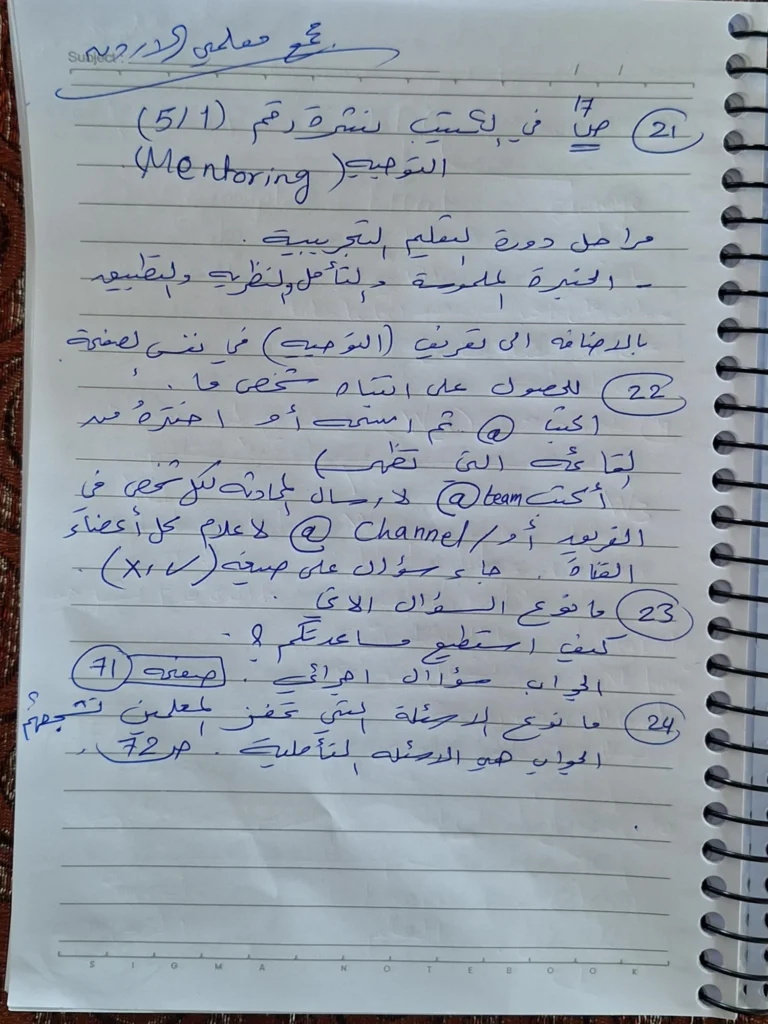 تجمع معلمي الاردن
Subject :
(21) ص17 في الكتيب نشرة رقم (5/1)
التوجيه (Mentoring)
مراحل دورة التعليم التجريبية .
- الخبرة الملموسة والتأمل والنظرية والتطبيق
بالاضافه الى تعريف (التوجيه) في نفس الصفحة
(22) للحصول على انتباه شخص ما .
اكتب @ ثم اسمه أو اختره من
القائمه التي تظهر)
أكتب team@ لارسال المحادثه لكل شخص في
الفريق أو/ Channel @ لاعلام كل أعضاء
القناة . جاء سؤال على صيغة (✓,X) .
(23) ما نوع السؤال الاتي
كيف استطيع مساعدتكم ؟ -
الجواب سؤال اجرائي . صفحة (71)
(24) ما نوع الاسئلة التي تحفز المعلمين تشجعهم
الجواب هو الاسئله التأملية . ص72 .
SIGMA NOTEBOOK